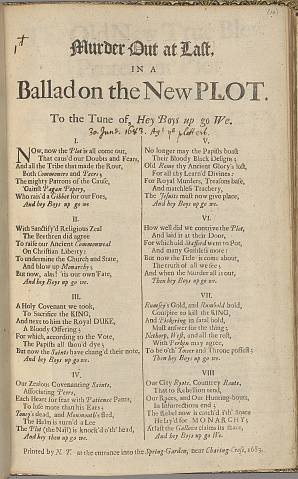 Murder Out at Last.
IN A
Ballad on the New PLOT.
To the Tune of, Hey Boys up go We.
I.
NOw, now the Plot is all come out,
That caus'd our Doubts and Fears,
And all the Tribe that made the Rout,
Both Commoners and Peers;
The mighty Patrons of the Cause,
'Gainst Pagan Popery,
Who rais'd a Gibbet for our Foes,
And hey Boys up go we.
II.
With Sanctify'd Religious Zeal
The Brethren did agree
To raise our Ancient Commonweal
On Christian Liberty:
To undermine the Church and State,
And blow up Monarchy;
But now, alas! 'tis our own Fate,
And hey Boys up go we.
III.
A Holy Covenant we took,
To Sacrifice the KING,
And next to him the Royal DUKE,
A Bloody Offering;
For which, according to the Vote,
The Papists all should dye;
But now the Saints have chang'd their note,
And hey Boys up go we.
IV.
Our Zealous Covenanting Saints,
Associating Peers,
Each Heart for fear with Patience Pants,
To lose more than his Ears;
Tony's dead, and Monmouth's fled,
The Helm is turn'd a Lee
The Plot (the Nail) is knock'd o'th' head,
And hey then up go we.
V.
No longer may the Papists boast
Their Bloody Black Designs;
Old Rome thy Ancient Glory's lost,
For all thy Learn'd Divines:
For Royal Murders, Treasons base,
And matchless Treachery,
The Jesuits must now give place,
And hey Boys up go we.
VI.
How well did we contrive the Plot,
And laid it at their Door,
For which old Stafford went to Pot,
And many Guiltless more:
But now the Tide is come about,
The truth of all we see;
And when the Murder all is out,
Then hey Boys up go we.
VII.
Rumsey's Gold, and Rumbold bold,
Conspire to kill the KING,
And Pickering in fatal hold,
Must answer for the thing;
With Ferguson may agree,
To be o'th' Tower and Throne possest;
Then hey Boys up go we.
VIII.
Our City Riots, Country Routs,
That to Rebellion tend,
Our Races, and Our Hunting-bouts,
In Insurrections end;
The Rebel now is catch'd i'th' snare
He lay'd for MONARCHY;
At last the Gallows claims its share,
And hey Boys up go We.
Printed by N. T. at the entrance into the Spring-Garden, near Charing-Cross, 1683.